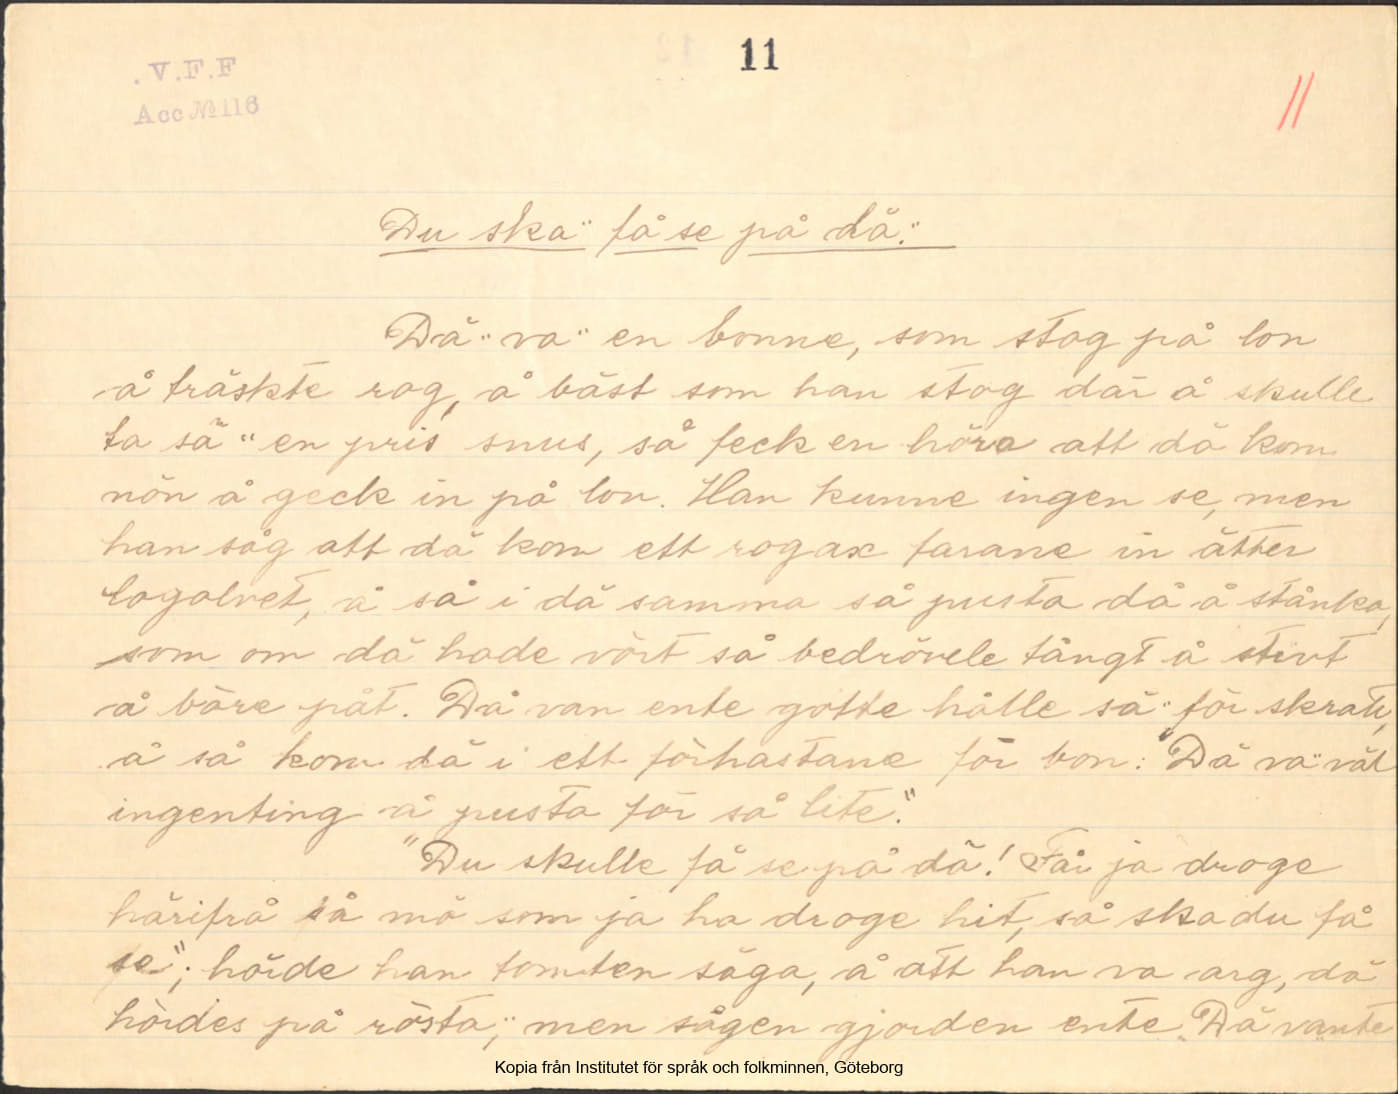 11
. V.F.F
Acc № 116
11
Du ska" få se på dä".
Dä" va" en bonne, som stog på lon
å träskte rog, å bäst som han stog där å skulle
ta sä" en pris snus, så feck en höra att dä kom
nön å geck in på lon. Han kunne ingen se, men
han såg att dä kom ett rogax farane in ätter
logolvet, å så i dä samma så pusta dä å stånka,
som om dä hade vört så bedrövele tångt å stivt
å båre påt. Då van ente gotte hålle sä" för skratt,
å så kom dä i ett förhastane för bon: "Dä va" väl
ingenting å pusta för så lite."
"Du skulle få se på dä! Får ja droge
härifrå så mö som ja ha droge hit, så ska du få
se"; hörde han tomten säga, å att han va arg, dä
hördes på rösta", men sågen gjorden ente. Dä vante
Kopia från Institutet för språk och folkminnen, Göteborg